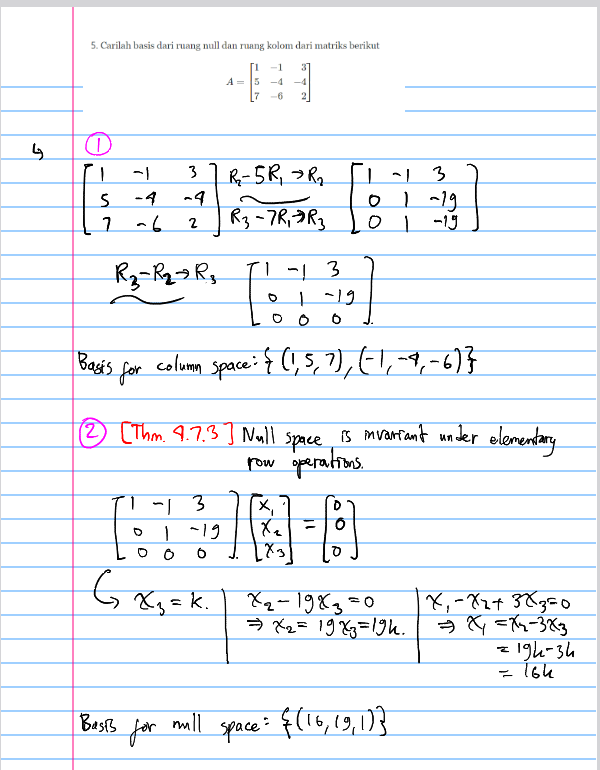 5. Carilah basis dari ruang null dan ruang kolom dari matriks berikut
A = [1 -1 3; 5 -4 -4; 7 -6 2]
①
[1 -1 3; 5 -4 -4; 7 -6 2] R₂-5R₁→R₂ R₃-7R₁→R₃ [1 -1 3; 0 1 -19; 0 1 -19]
R₃-R₂→R₃ [1 -1 3; 0 1 -19; 0 0 0]
Basis for column space: {(1,5,7),(-1,-4,-6)}
② [Thm. 4.7.3] Null space is invariant under elementary
row operations.
[1 -1 3; 0 1 -19; 0 0 0] [x₁; x₂; x₃] = [0; 0; 0]
x₃ = k. | x₂-19x₃=0 | x₁-x₂+3x₃=0
⇒ x₂= 19x₃=19k. | ⇒ x₁ =x₂-3x₃
= 19k-3k
= 16k
Basis for null space: {(16,19,1)}